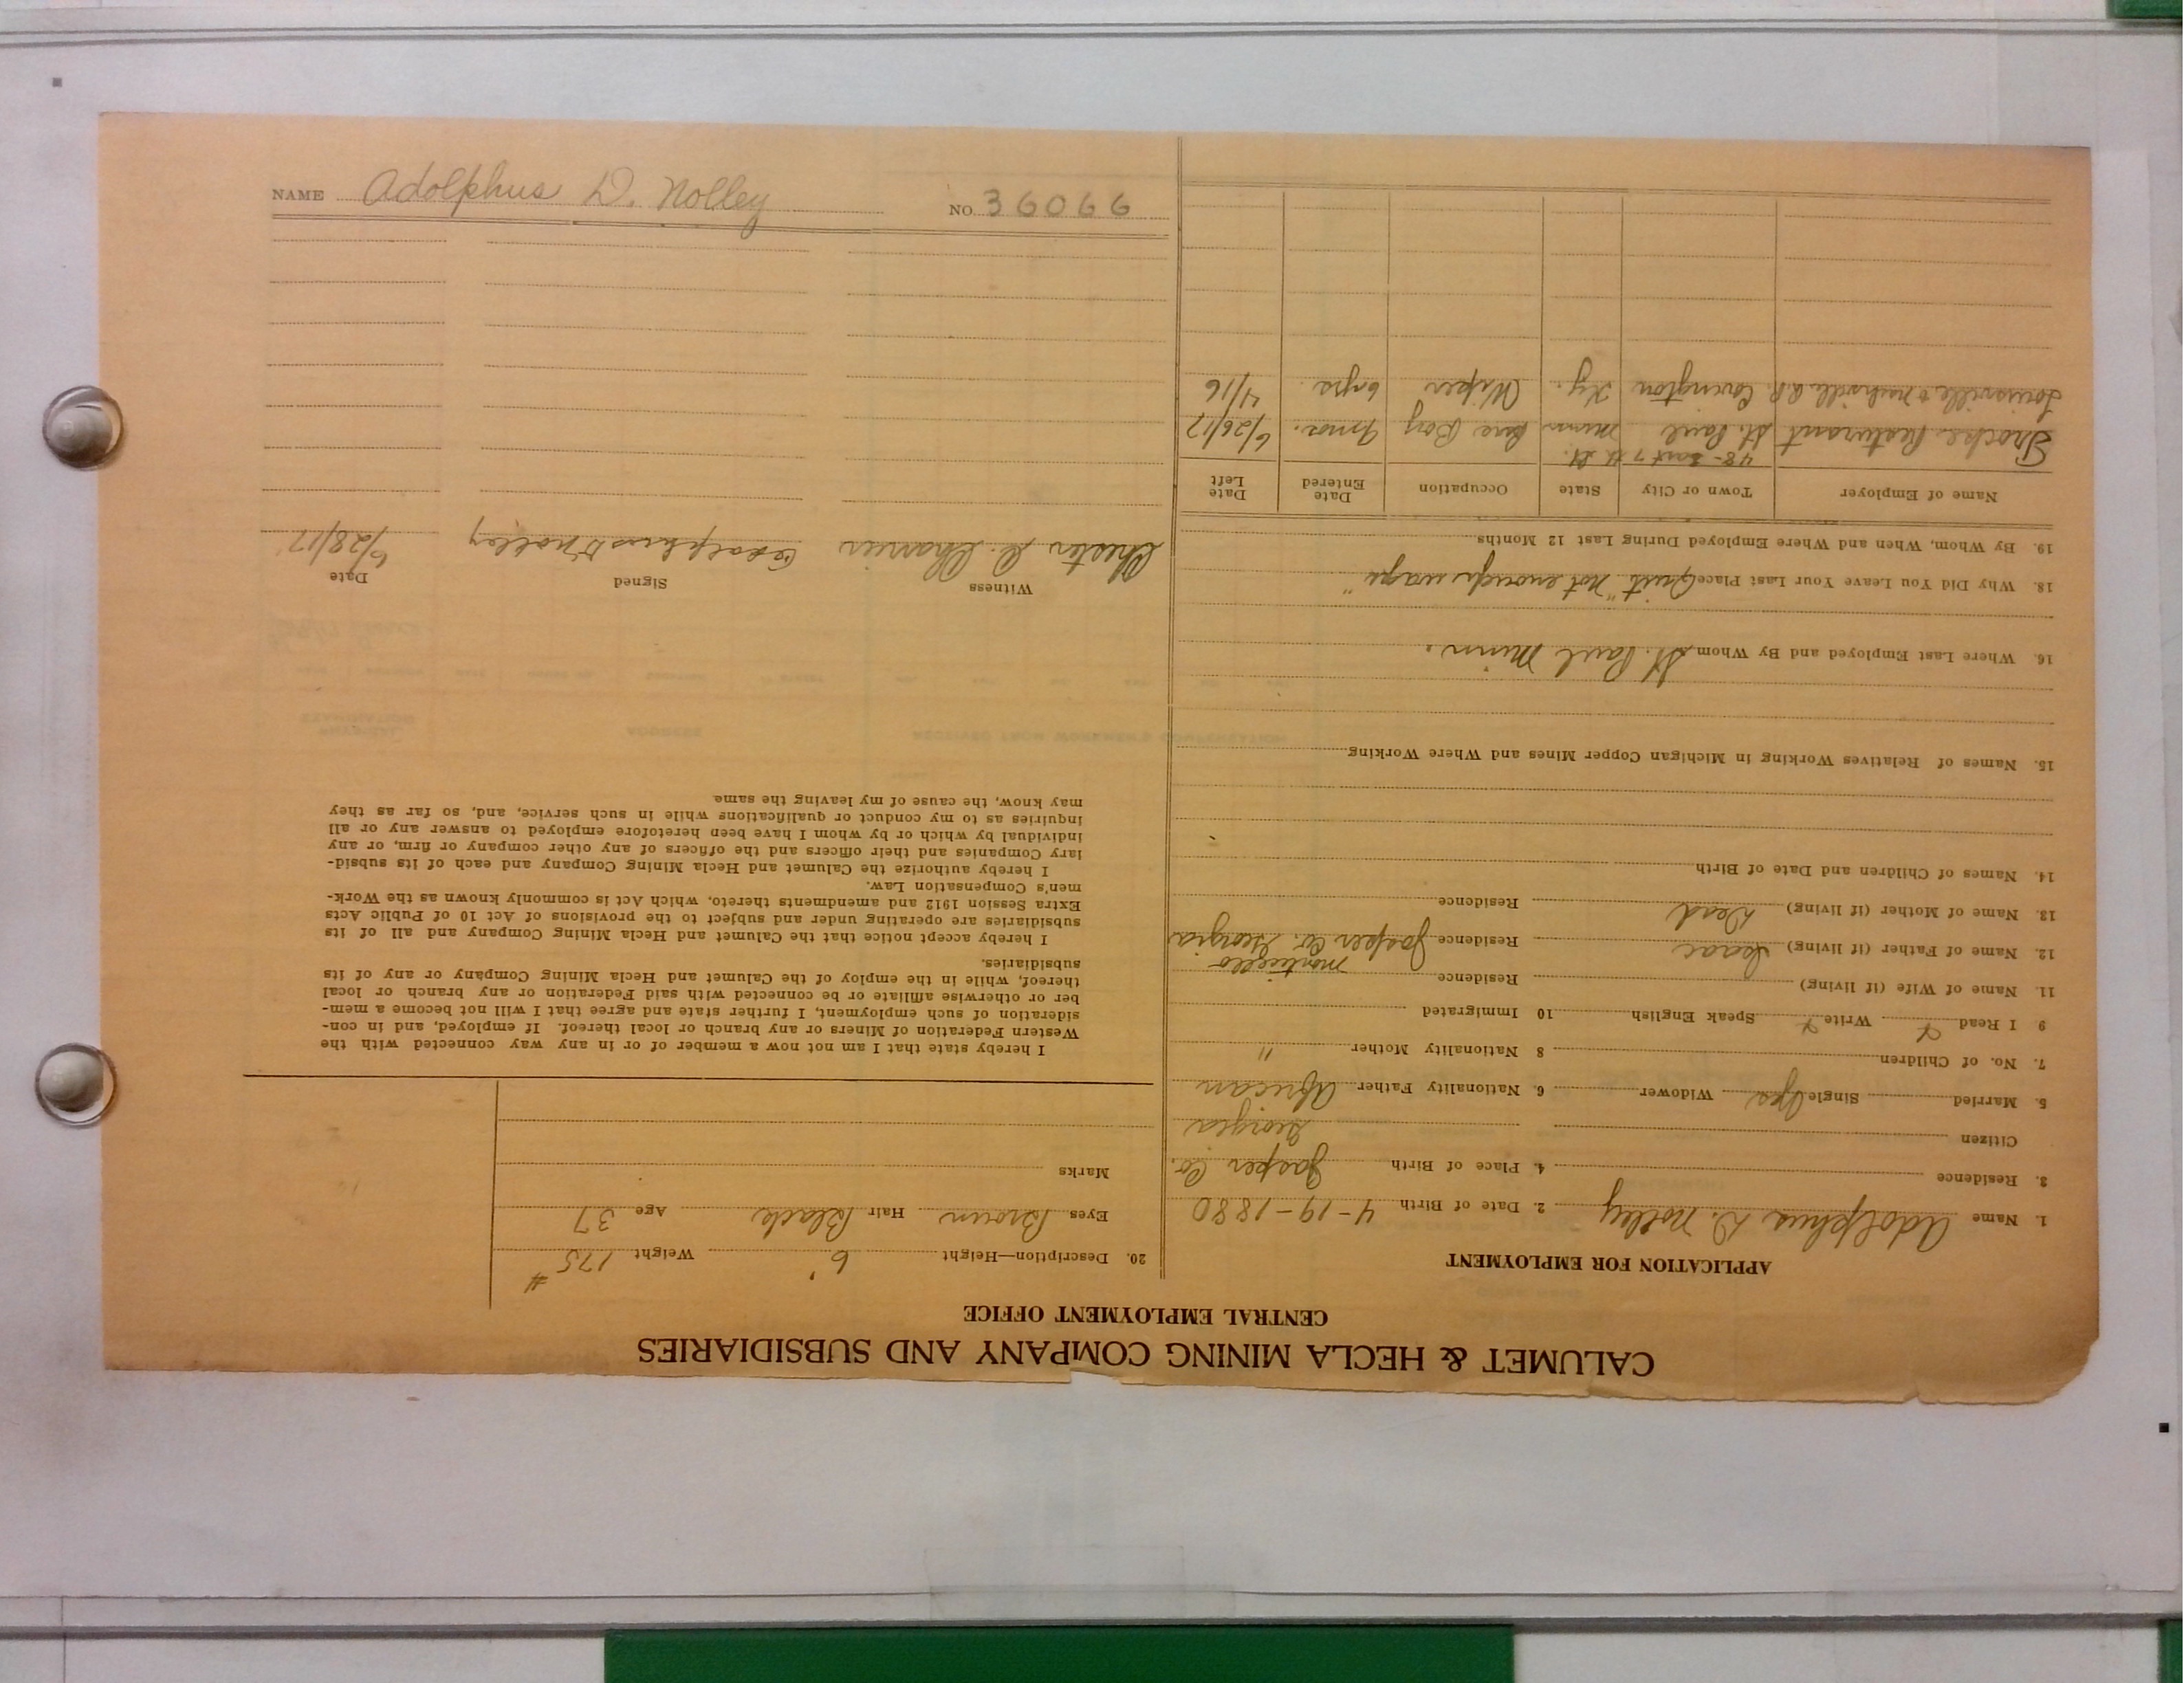 NAME Adolphus D. Nolley NO. 36066
CALUMET & HECLA MINING COMPANY AND SUBSIDIARIES
CENTRAL EMPLOYMENT OFFICE
APPLICATION FOR EMPLOYMENT
1. Name Adolphus D. Nolley 2. Date of Birth 4-19-1880
3. Residence 4. Place of Birth Jasper Co.
Citizen Georgia
5. Married Single Yes Widower 6. Nationality Father African
7. No. of Children 8 Nationality Mother "
9 I Read Write Speak English 10 Immigrated
11. Name of Wife (if living) Residence
Monticello
12. Name of Father (if living) Isaac Residence Jasper Co. Georgia
13. Name of Mother (if living) Dead Residence
14. Names of Children and Date of Birth
15. Names of Relatives Working in Michigan Copper Mines and Where Working
16. Where Last Employed and By Whom St. Paul Minn.
18. Why Did You Leave Your Last Place Quit "not enough wages"
19. By Whom, When and Where Employed During Last 12 Months
Name of Employer Town or City State Occupation Date Entered Date Left
48- East 7th St.
Restaurant St. Paul Minn Boy 6/26/17
Louisville & Nashville R.R. Covington Ky. Wiper 6 yrs. 4/16
20. Description—Height 6' Weight 175 #
Eyes Brown Hair Black Age 37
Marks
I hereby state that I am not now a member of or in any way connected with the
Western Federation of Miners or any branch or local thereof. If employed, and in con-
sideration of such employment, I further state and agree that I will not become a mem-
ber or otherwise affiliate or be connected with said Federation or any branch or local
thereof, while in the employ of the Calumet and Hecla Mining Company or any of its
subsidiaries.
I hereby accept notice that the Calumet and Hecla Mining Company and all of its
subsidiaries are operating under and subject to the provisions of Act 10 of Public Acts
Extra Session 1912 and amendments thereto, which Act is commonly known as the Work-
men's Compensation Law.
I hereby authorize the Calumet and Hecla Mining Company and each of its subsid-
iary Companies and their officers and the officers of any other company or firm, or any
individual by which or by whom I have been heretofore employed to answer any or all
inquiries as to my conduct or qualifications while in such service, and, so far as they
may know, the cause of my leaving the same.
Witness Signed Date
Chester Adolphus D Nolley 6/28/17